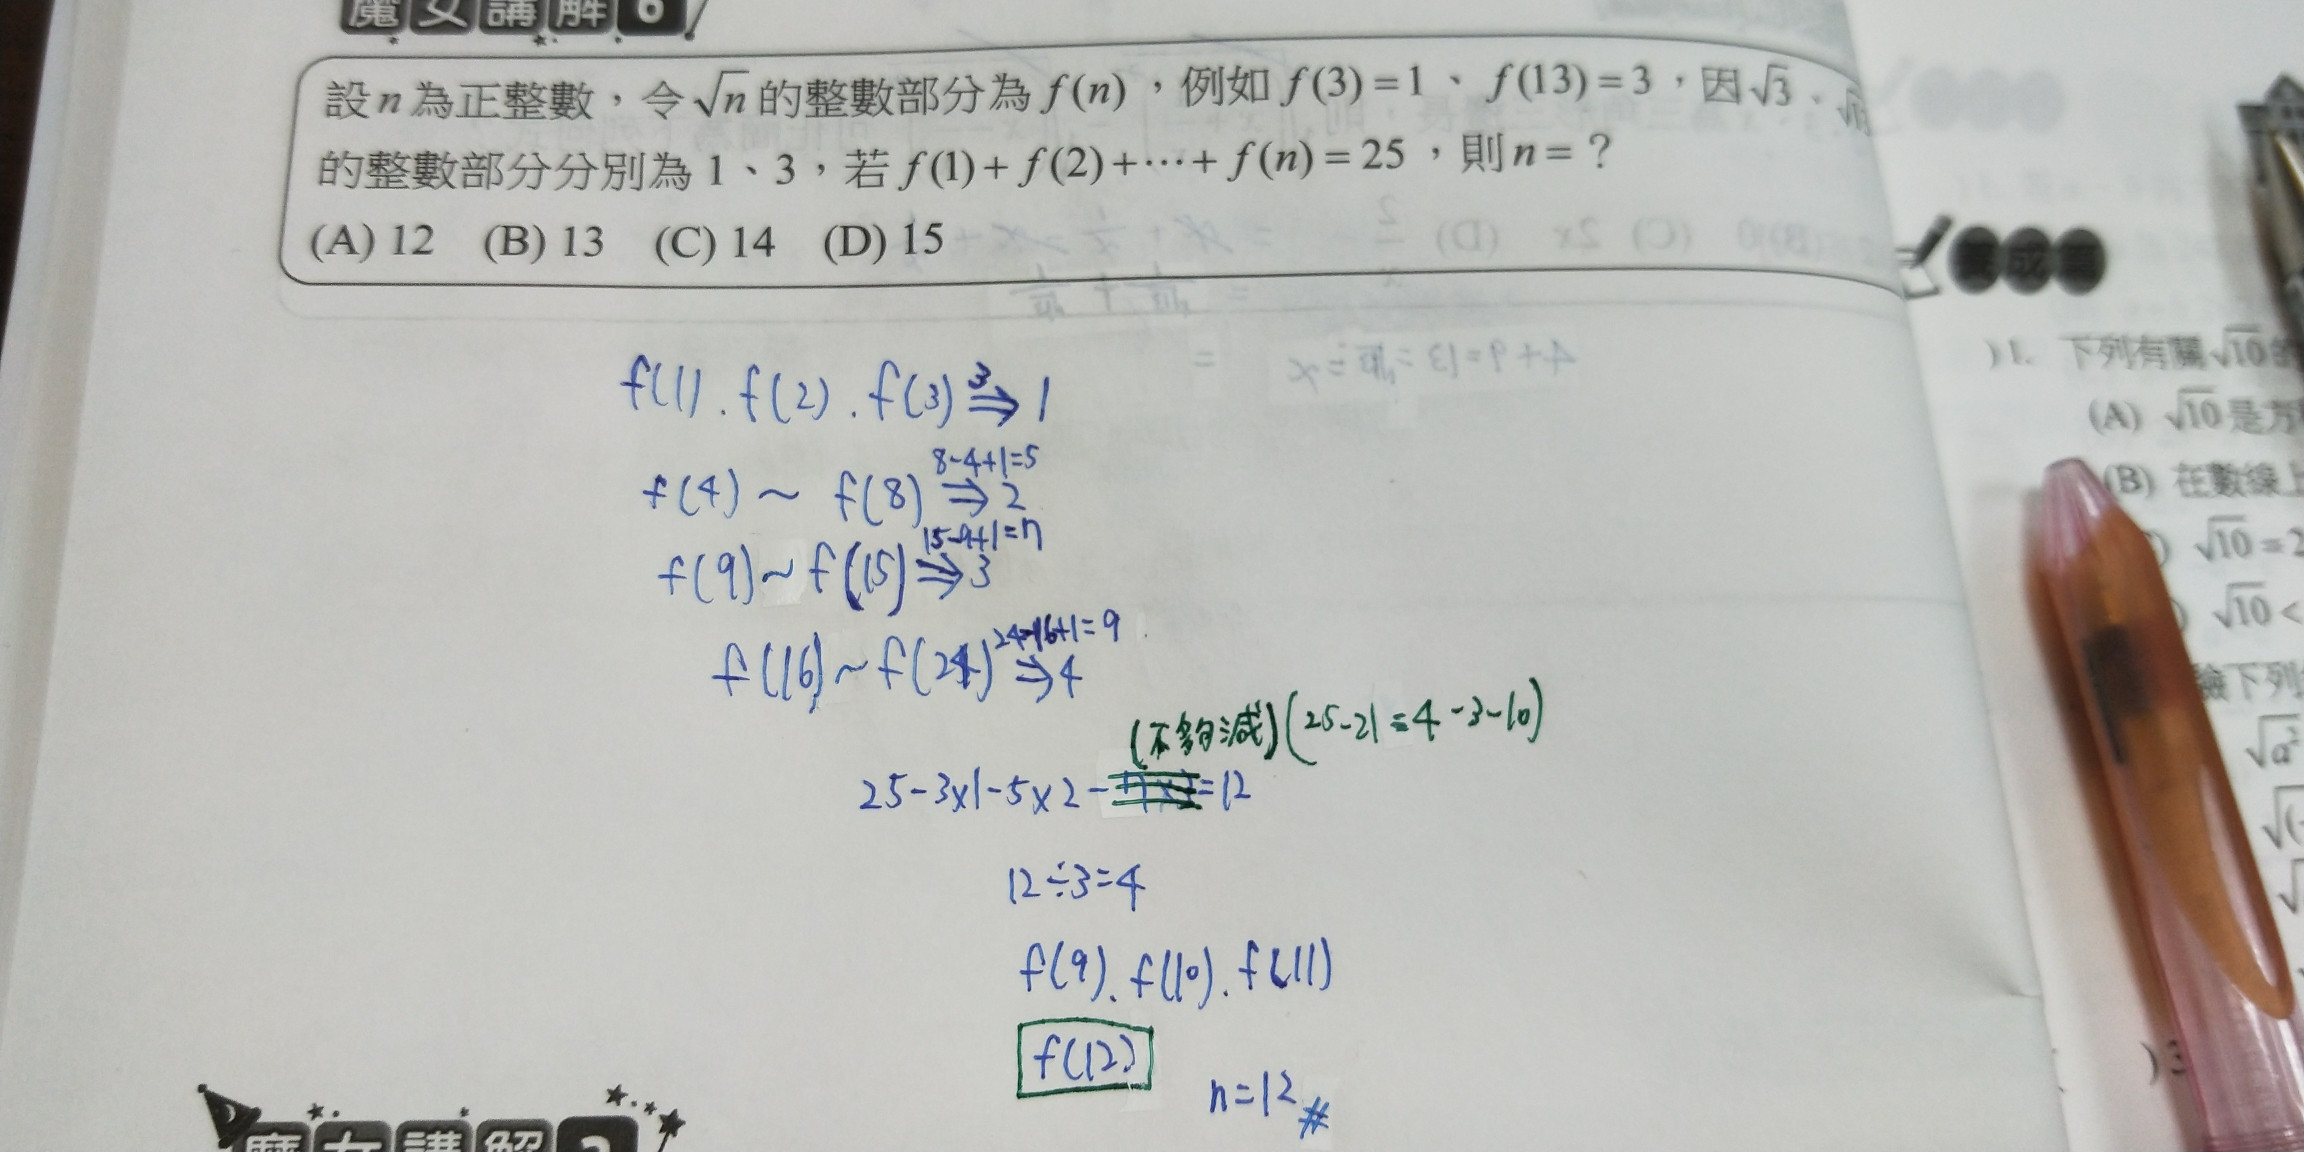 魔女講解 6
設 n 為正整數，令 √n 的整數部分為 f(n)，例如 f(3)=1、f(13)=3，因 √3、
的整數部分分別為 1、3，若 f(1)+f(2)+⋯+f(n)=25，則 n=？
(A) 12 (B) 13 (C) 14 (D) 15
f(1).f(2).f(3) 3⇒ 1
8-4+1=5
f(4)～f(8) ⇒ 2
15-9+1=7
f(9)～f(15) ⇒ 3
24-16+1=9
f(16)～f(24) ⇒ 4
(不夠減)(25-21=4-3-10)
25-3×1-5×2- =12
12÷3=4
f(9).f(10).f(11)
f(12)
n=12#
魔女講解
養成
)1. 下列有關√10
(A) √10是方
(B) 在數線上
√10=2
√10<
下列
√a²
√(
)3